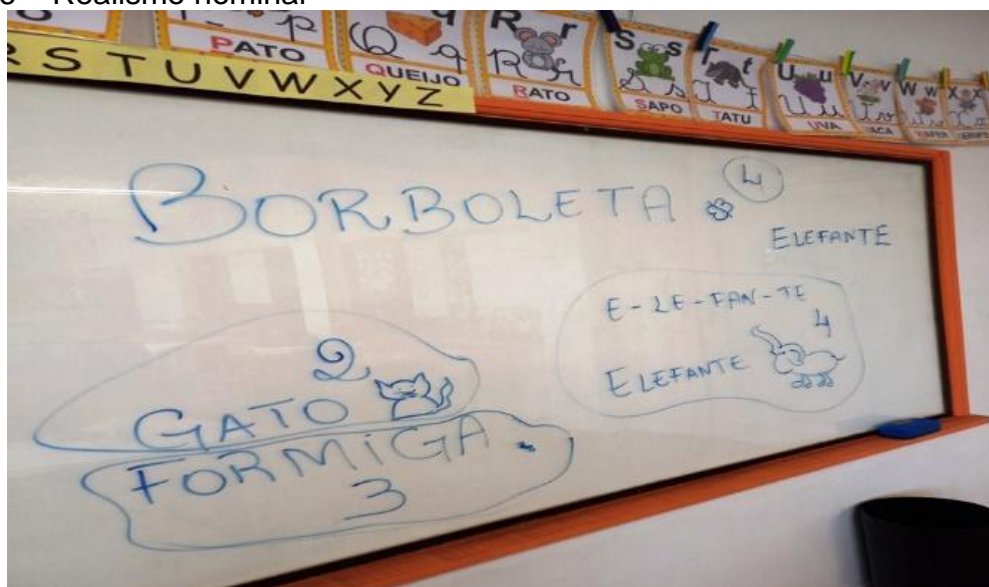 Realismo nominal
P
PATO
Q q
QUEIJO
R r
RATO
S s
SAPO
T t
TATU
U u
UVA
V v
VACA
W w
X x
S T U V W X Y Z
BORBOLETA 4
ELEFANTE
E-LE-FAN-TE
4
ELEFANTE
2
GATO
FORMIGA
3